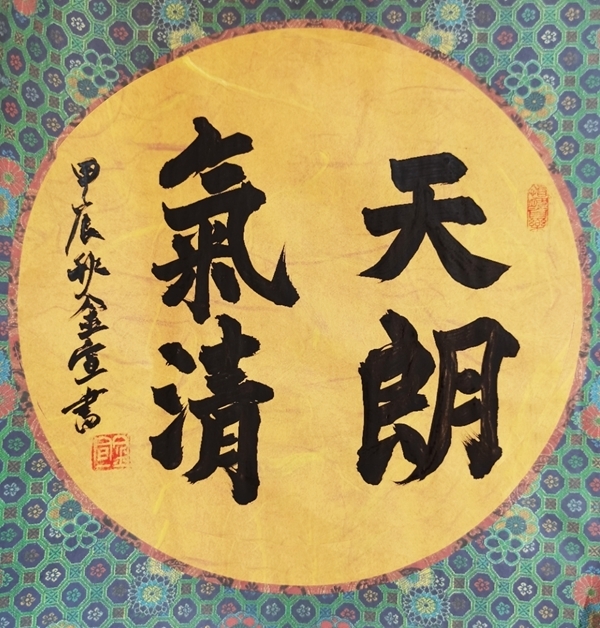 天朗
氣清
甲辰秋金宣書